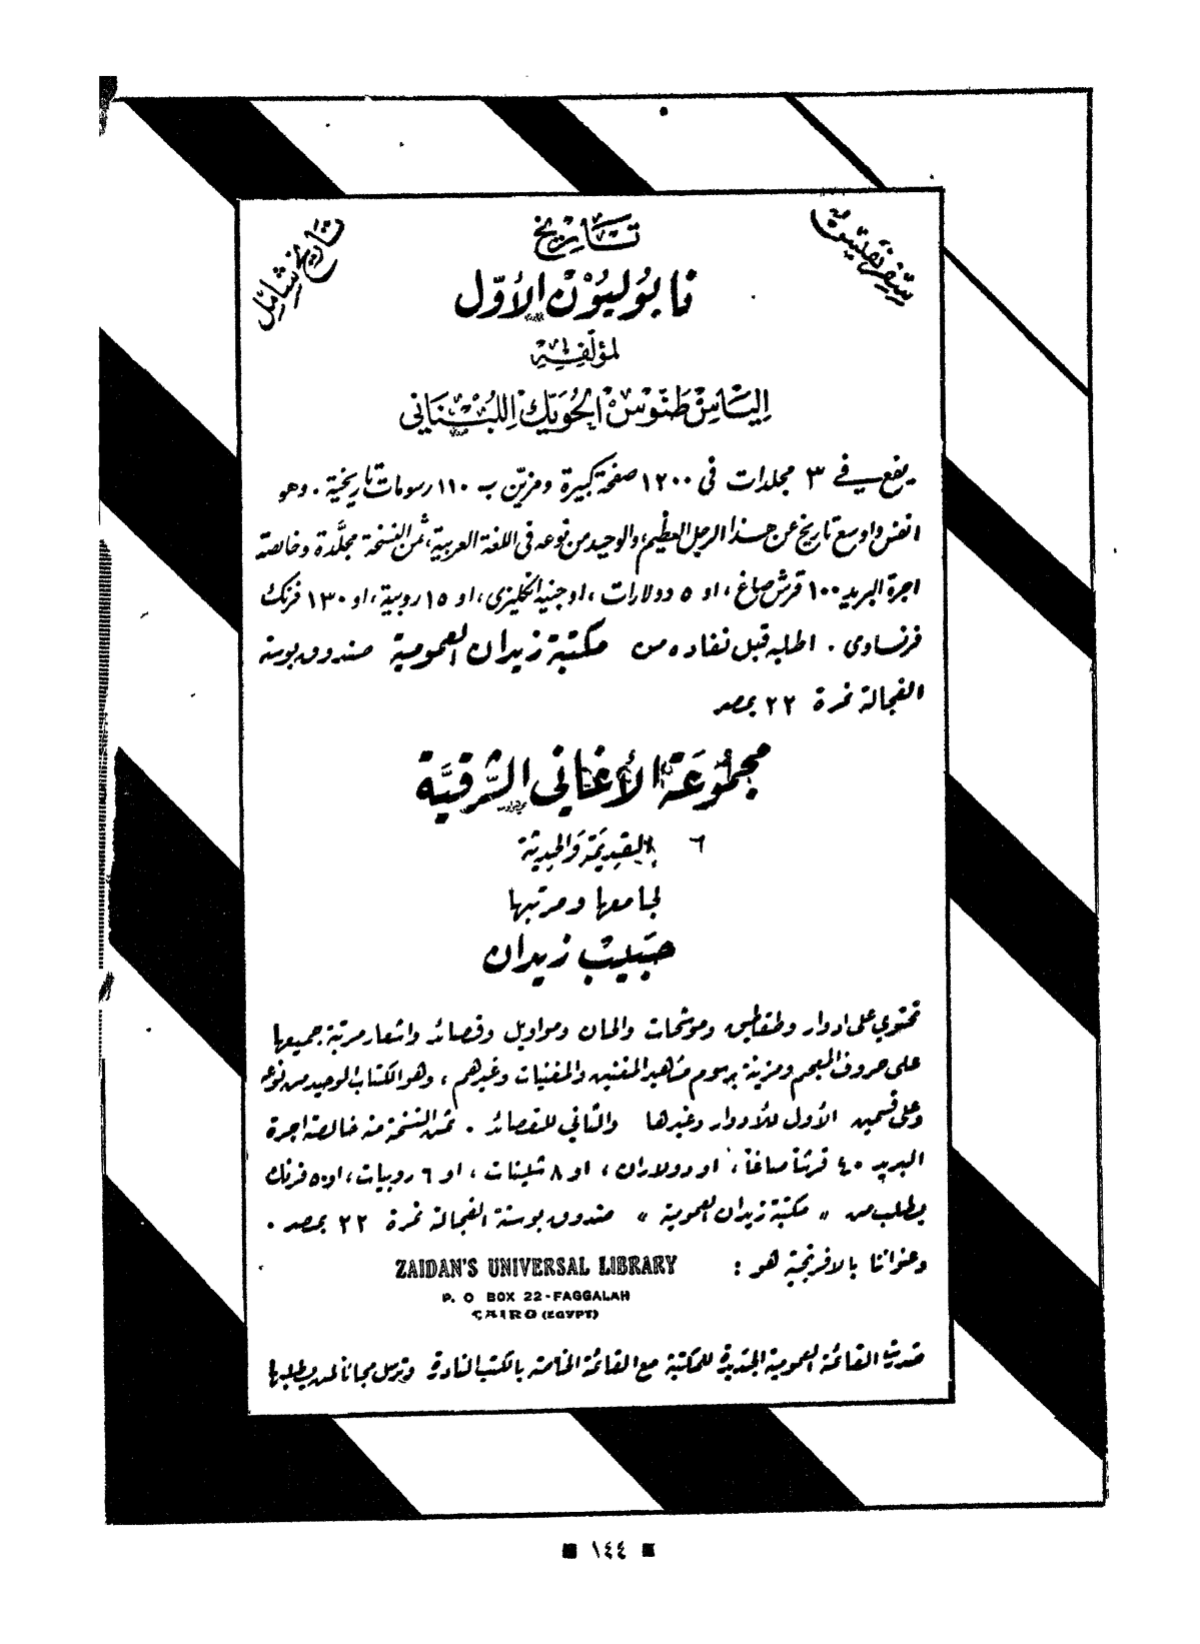 سفر نفيس
تاريخ
تاريخ شامل
نابوليون الأول
لمؤلفه
الياس طنوس الحويك اللبناني
يقع في ٣ مجلدات في ١٢٠٠ صفحة كبيرة ومزين ب ١١٠ رسومات تاريخية . وهو
انفس واوسع تاريخ عن هذا الرجل العظيم والوحيد من نوعه في اللغة العربية، ثمن النسخة مجلَّدة وخالصة
اجرة البريد ١٠٠ قرش صاغ، او ٥ دولارات، او جنيه انجليزي، او ١٥ روبية، او ١٣٠ فرنك
فرنساوى . اطلبه قبل نفاده من مكتبة زيدان العمومية صندوق بوستة
الفجالة نمرة ٢٢ بمصر
مجموعة الأغاني الشرقية
القديمة والحديثة ٦
لجامعها ومرتبها
حبيب زيدان
تحتوي على ادوار وطقاطيق وموشحات والحان ومواويل وقصائد واشعار مرتبة جميعها
على حروف المعجم ومزينة برسوم مشاهير المغنين والمغنيات وغيرهم، وهو الكتاب الوحيد من نوعه
وعلى قسمين الأول للأدوار وغيرها والثاني للقصائد . ثمن النسخة منه خالصة اجرة
البريد ٤٠ قرشاً صاغاً، او دولاران، او ٨ شلينات، او ٦ روبيات، او ٥٠ فرنك
يطلب من « مكتبة زيدان العمومية » صندوق بوستة الفجالة نمرة ٢٢ بمصر .
وعنواننا بالافرنجية هو : ZAIDAN'S UNIVERSAL LIBRARY
P. O BOX 22-FAGGALAH
CAIRO (EGYPT)
صدرت القائمة العمومية الجديدة للمكتبة مع القائمة الخاصة بالكتب النادرة وترسل مجاناً لمن يطلبها
١٤٤